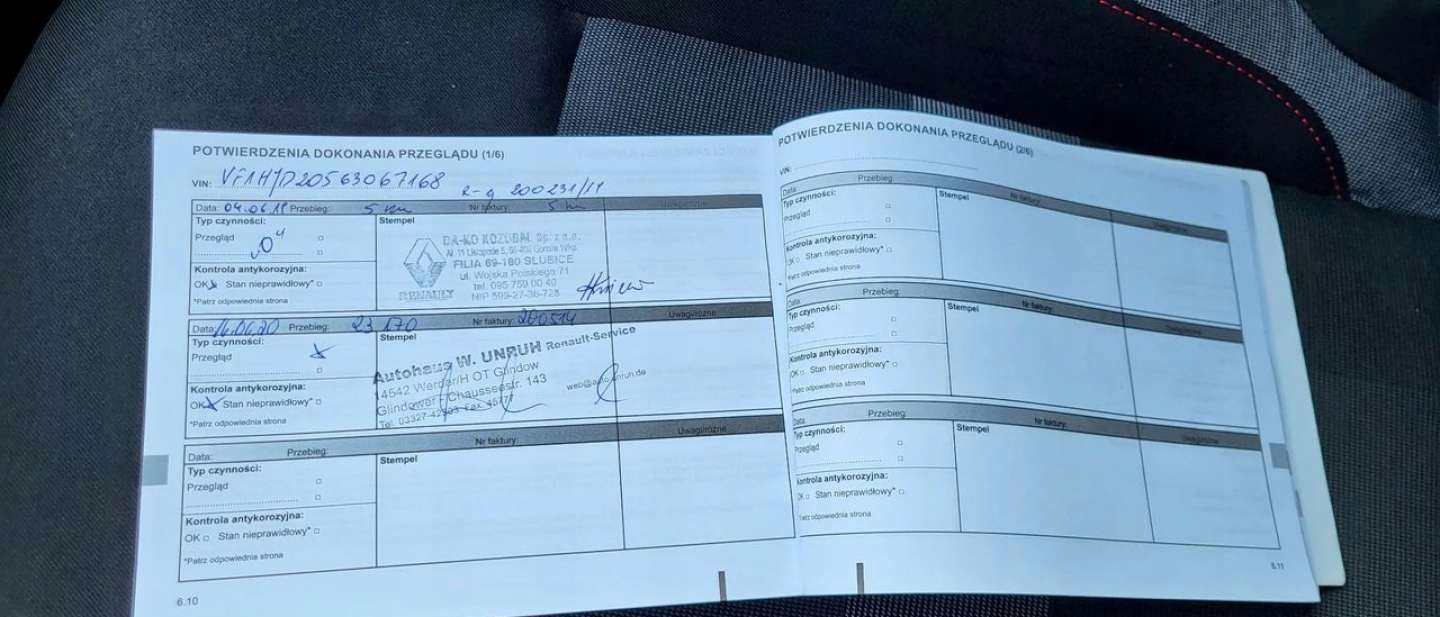 POTWIERDZENIA DOKONANIA PRZEGLĄDU (1/6)
VIN: VF1HJD20563067168
R-q 200231/11
Data: 04.06.19 Przebieg: 5 km Nr faktury: 5 km Uwagi/różne
Typ czynności: Stempel
Przegląd
Kontrola antykorozyjna:
OK Stan nieprawidłowy*
*Patrz odpowiednia strona
DA-KO KOZUBAL Sp. z o.o.
FILIA 69-180 SLUBICE
ul. Wojska Polskiego 71
tel. 095 759 00 40
NIP 599-27-36-728
RENAULT
Data: 16.06.20 Przebieg: 23 170 Nr faktury: 200514 Uwagi/różne
Typ czynności: Stempel
Przegląd
Kontrola antykorozyjna:
OK Stan nieprawidłowy*
*Patrz odpowiednia strona
Autohaus W. UNRUH Renault-Service
14542 Werder/H OT Glindow
Glindower Chausseestr. 143
Data: Przebieg: Nr faktury: Uwagi/różne
Typ czynności: Stempel
Przegląd
Kontrola antykorozyjna:
OK Stan nieprawidłowy*
*Patrz odpowiednia strona
6.10
POTWIERDZENIA DOKONANIA PRZEGLĄDU (2/6)
VIN:
Data: Przebieg: Nr faktury: Uwagi/różne
Typ czynności: Stempel
Przegląd
Kontrola antykorozyjna:
OK Stan nieprawidłowy*
*Patrz odpowiednia strona
Data: Przebieg: Nr faktury: Uwagi/różne
Typ czynności: Stempel
Przegląd
Kontrola antykorozyjna:
OK Stan nieprawidłowy*
*Patrz odpowiednia strona
Data: Przebieg: Nr faktury: Uwagi/różne
Typ czynności: Stempel
Przegląd
Kontrola antykorozyjna:
OK Stan nieprawidłowy*
*Patrz odpowiednia strona
6.11